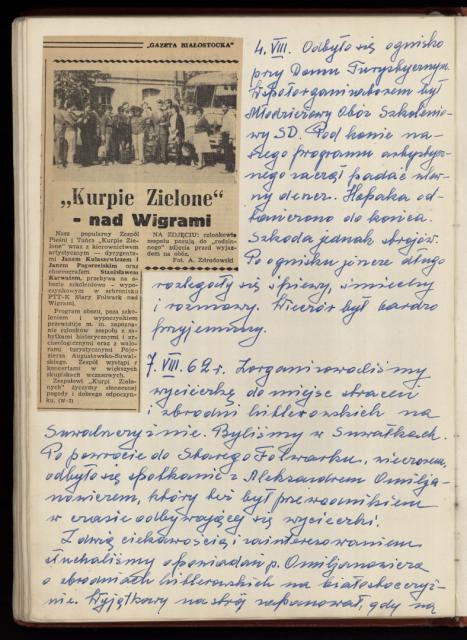 „GAZETA BIAŁOSTOCKA"
„Kurpie Zielone"
- nad Wigrami
Nasz popularny Zespół
Pieśni i Tańca „Kurpie Zie-
lone" wraz z kierownictwem
artystycznym — dyrygenta-
mi Janem Kulaszewiczem i
Janem Pogorzelskim oraz
choreografem Stanisławem
Karwatem, przebywa na o-
bozie szkoleniowo - wypo-
czynkowym w schronisku
PTT-K Stary Folwark nad
Wigrami.
Program obozu, poza szko-
leniem i wypoczynkiem
przewiduje m. in. zapozna-
nie członków zespołu z za-
bytkami historycznymi i ar-
cheologicznymi oraz z walo-
rami turystycznymi Poje-
zierza Augustowsko-Suwal-
skiego. Zespół wystąpi z
koncertami w większych
skupiskach wczasowych.
Zespołowi „Kurpi Zielo-
nych" życzymy słonecznej
pogody i dobrego odpoczyn-
ku. (W-2)
NA ZDJĘCIU: członkowie
zespołu pozują do „rodzin-
nego" zdjęcia przed wyjaz-
dem na obóz.
Fot. A. Zdrodowski
4. VIII. Odbyło się ognisko
przy Domu Turystycznym.
Współorganizatorem był
Młodzieżowy Obóz Szkolenio-
wy SD. Pod konie na-
szego programu artystycz-
nego zaczął padać ulew-
ny deszcz. Hopaka od-
tańczono do końca.
Szkoda jednak strojów.
Po ognisku jeszcze długo
rozlegały się śpiewy, śmiechy
i rozmowy. Wieczór był bardzo
przyjemny.
7. VIII. 62 r. Zorganizowaliśmy
wycieczkę do miejsc straceń
i zbrodni hitlerowskich na
Suwalszczyźnie. Byliśmy w Suwałkach.
Po powrocie do Starego Folwarku, wieczorem,
odbyło się spotkanie z Aleksandrem Omilja-
nowiczem, który też był przewodnikiem
w czasie odbywającej się wycieczki.
Z dużą ciekawością i zainteresowaniem
słuchaliśmy opowiadań p. Omiljanowicza
o zbrodniach hitlerowskich na białostocczyź-
nie. Wyjątkowy nastrój zapanował, gdy na